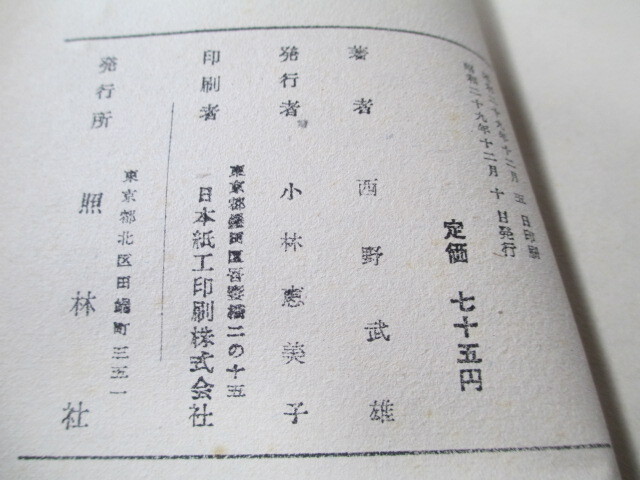 昭和二十九年十二月 五 日印刷
昭和二十九年十二月 十 日発行
定価 七十五円
著者 西野武雄
発行者 小林恵美子
東京都墨田区吾妻橋二の十五
印刷者 日本紙工印刷株式会社
東京都北区田端町三五一
発行所 照林社